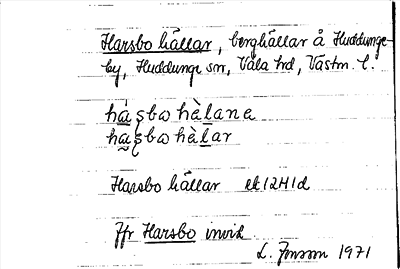 Harsbo hällar, berghällar å Huddunge-
by, Huddunge sn, Våla hd, Västm. l.
hàʂbω hὲlane
hàʂbω hὲlar
Harsbo hällar ek 12H1d
Jfr Harsbo invik
L. Jonson 1971